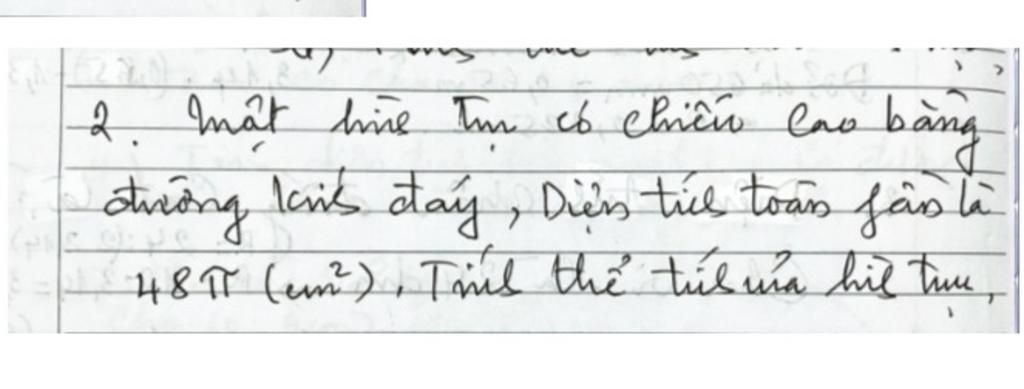 2. Một hình trụ có chiều cao bằng
đường kính đáy, Diện tích toàn fần là
48π (cm²). Tính thể tích của hình trụ.